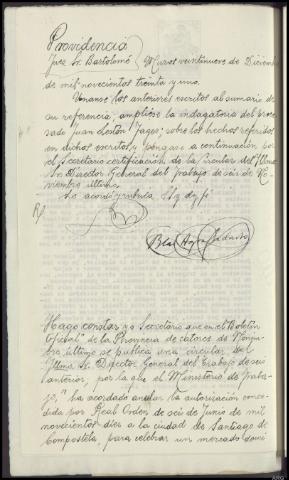 Providencia
Juez Sr. Bartolomé
Muros veintinueve de Diciembre
de mil novecientos treinta y uno.
Unanse los anteriores escritos al sumario de
su referencia; amplíese la indagatoria del proce-
sado Juan Lestón Jages; sobre los hechos referidos
en dichos escritos, y póngase a continuación por
el Secretario certificación de la Circular del Iltmo.
Sr. Director General del Trabajo de seis de No-
viembre último.
Lo acordó y rubrica S.Sª doy fé
Hago constar yo Secretario que en el Boletín
Oficial de la Provincia de catorce de Noviem-
bre último se publica una circular del
Iltmo. Sr. Director General del Trabajo de seis
anterior, por la que el Ministerio de Traba-
jo, "ha acordado anular la autorización conce-
dida por Real Orden de seis de Junio de mil
novecientos diez a la ciudad de Santiago de
Compostela, para celebrar un mercado domi-